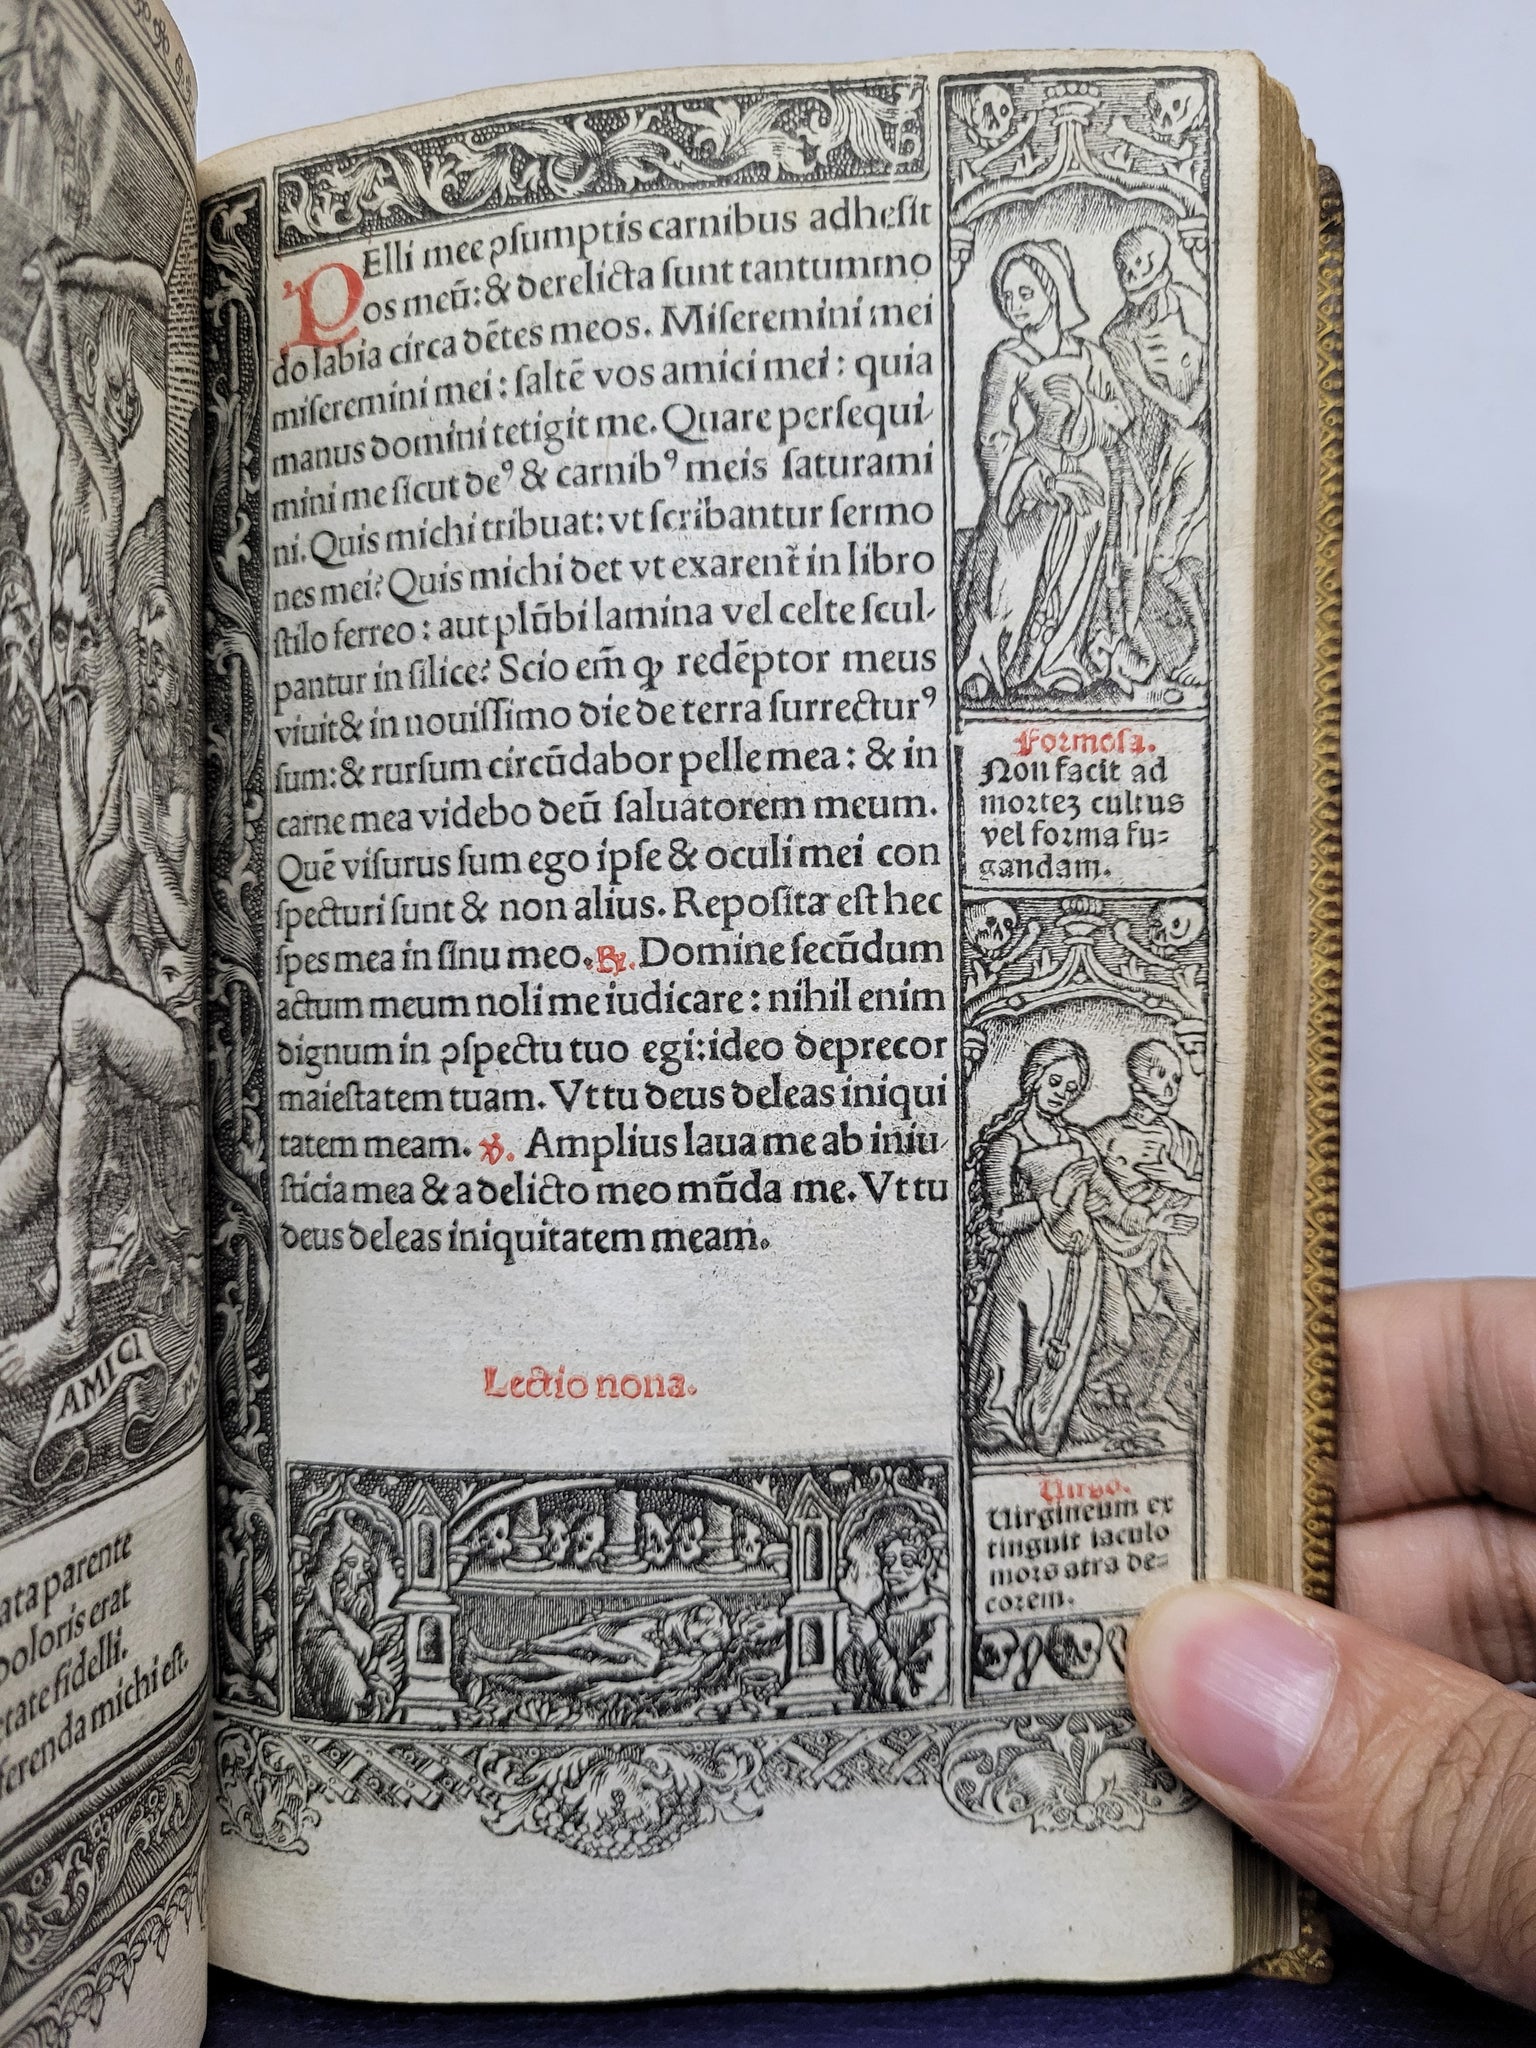 AMICI
ata parente
doloris erat
etate fidelli.
ferenda michi est.
PElli mee ꝯsumptis carnibus adhesit
os meū: & derelicta sunt tantummo
do labia circa dētes meos. Miseremini mei
miseremini mei: saltē vos amici mei: quia
manus domini tetigit me. Quare persequi-
mini me sicut deꝰ & carnibꝰ meis saturami
ni. Quis michi tribuat: vt scribantur sermo
nes mei? Quis michi det vt exarent̃ in libro
stilo ferreo: aut plūbi lamina vel celte scul-
pantur in silice? Scio em̄ ꝙ redēptor meus
viuit & in nouissimo die de terra surrecturꝰ
sum: & rursum circūdabor pelle mea: & in
carne mea videbo deū saluatorem meum.
Quē visurus sum ego ipse & oculi mei con
specturi sunt & non alius. Reposita est hec
spes mea in sinu meo. ℟. Domine secūdum
actum meum noli me iudicare: nihil enim
dignum in ꝯspectu tuo egi: ideo deprecor
maiestatem tuam. Vt tu deus deleas iniqui
tatem meam. ℣. Amplius laua me ab iniu-
sticia mea & a delicto meo mūda me. Vt tu
deus deleas iniquitatem meam.
Lectio nona.
Formosa.
Non facit ad
mortez cultus
vel forma fu-
gandam.
Virgo.
Virgineum ex
tinguit iaculo
mors atra de-
corem.